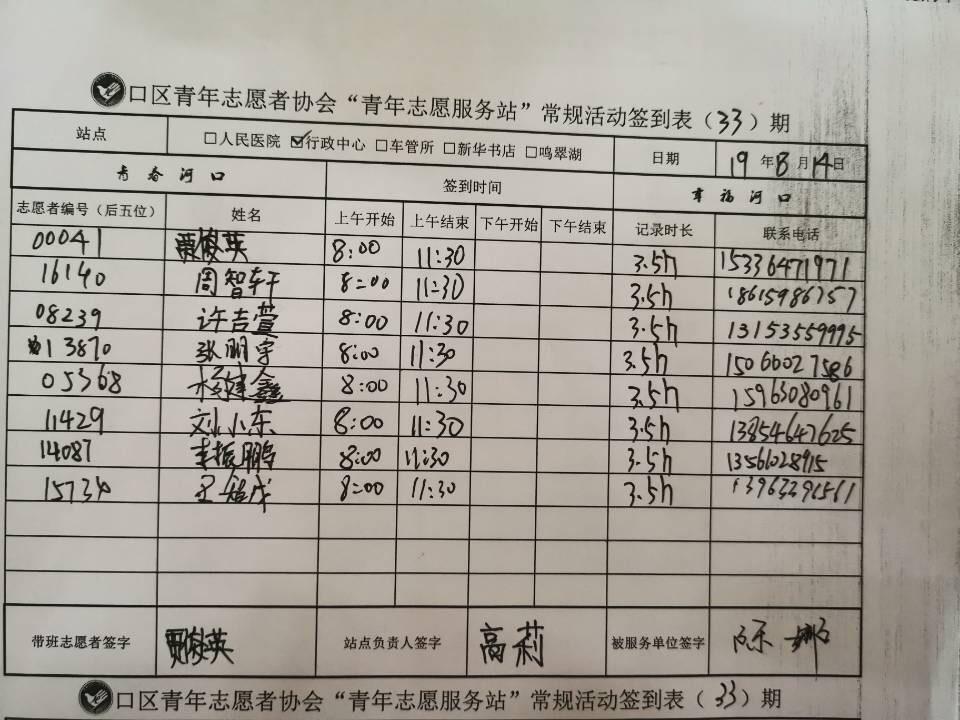 口区青年志愿者协会“青年志愿服务站”常规活动签到表（33）期
站点 □人民医院 ☑行政中心 □车管所 □新华书店 □鸣翠湖 日期 19年8月14日
青春河口 签到时间 幸福河口
志愿者编号（后五位） 姓名 上午开始 上午结束 下午开始 下午结束 记录时长 联系电话
00041 贾俊英 8:00 11:30 3.5h 15336471971
16140 周智轩 8:00 11:30 3.5h 18615986757
08239 许吉萱 8:00 11:30 3.5h 13153559995
13870 张鹏宇 8:00 11:30 3.5h 15066027586
05368 杨建鑫 8:00 11:30 3.5h 15965080961
11429 刘小东 8:00 11:30 3.5h 13854647625
14087 李振鹏 8:00 11:30 3.5h 1356028915
8:00 11:30 3.5h
带班志愿者签字 贾俊英 站点负责人签字 高莉 被服务单位签字 陈娜
口区青年志愿者协会“青年志愿服务站”常规活动签到表（33）期